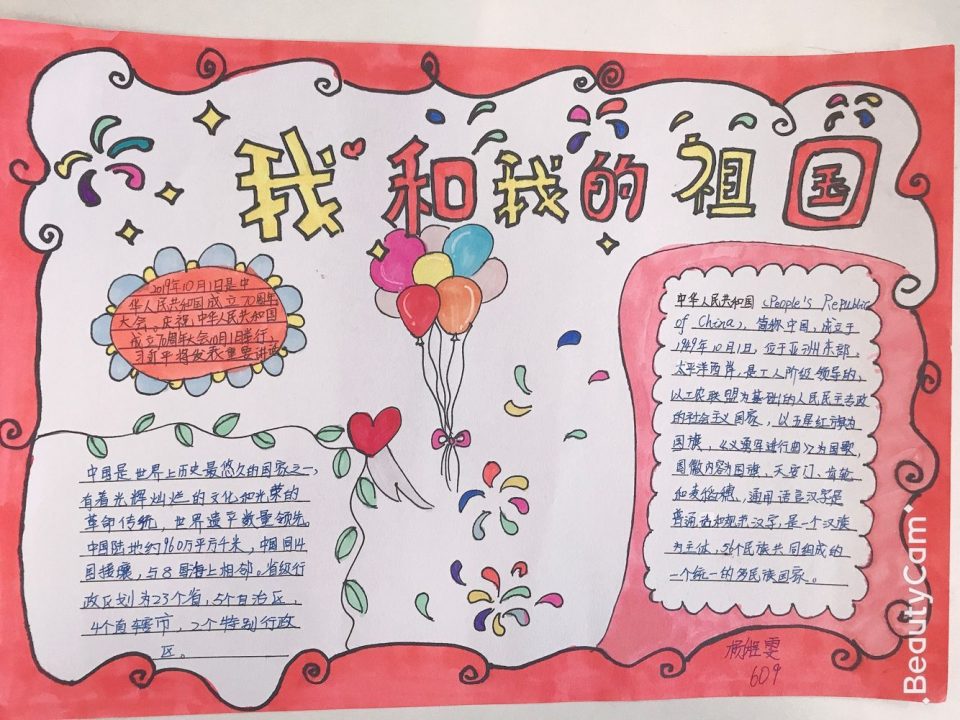 我和我的祖国
2019年10月1日是中
华人民共和国成立70周年
大会。庆祝中华人民共和国
成立70周年大会10月1日举行,
习近平将发表重要讲话
中国是世界上历史最悠久的国家之一,
有着光辉灿烂的文化和光荣的
革命传统,世界遗产数量领先。
中国陆地约960万平方千米,中国同14
国接壤,与8国海上相邻。省级行
政区划为23个省,5个自治区,
4个直辖市,2个特别行政
区。
中华人民共和国(People's Republic
of China),简称中国,成立于
1949年10月1日,位于亚洲东部,
太平洋西岸,是工人阶级领导的,
以工农联盟为基础的人民民主专政
的社会主义国家,以五星红旗为
国旗,《义勇军进行曲》为国歌,
国徽内容为国旗、天安门、齿轮
和麦稻穗,通用语言汉字是
普通话和规范汉字,是一个汉族
为主体,56个民族共同构成的
一个统一的多民族国家。
609
BeautyCam